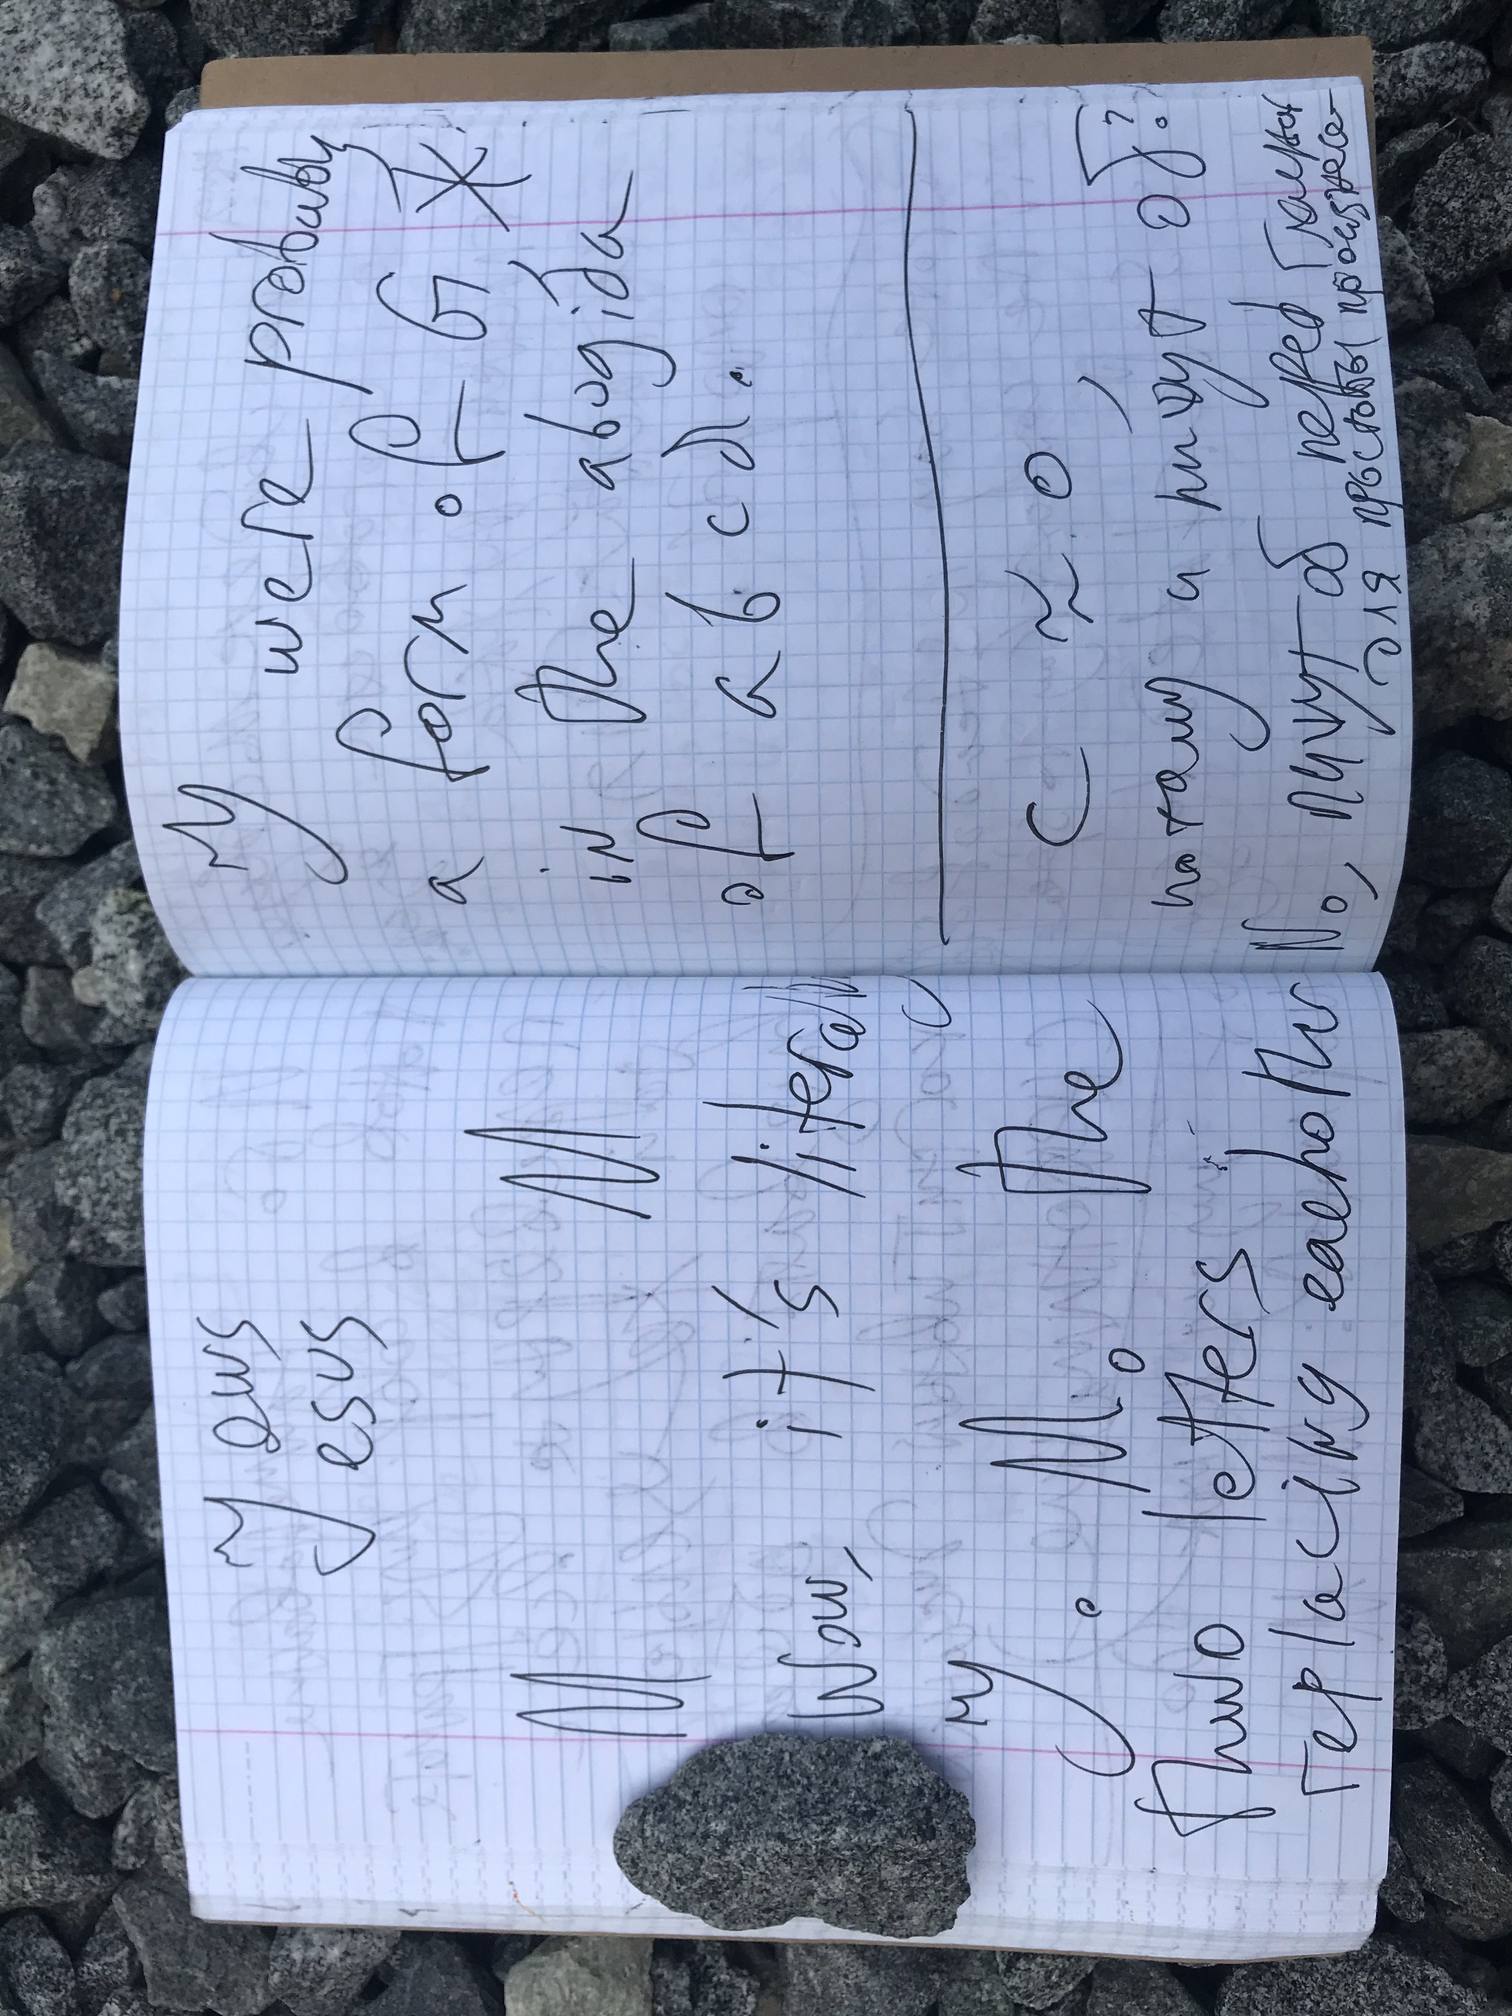 y ews
y esus
M M
Wow, it's literally
y. M. The
two letters
replacing eachother
y were probably
a form of б ж
in the abugida
of a b c d.
C ≈ O,
потому и пишут об?
No, пишут об перед
для простоты